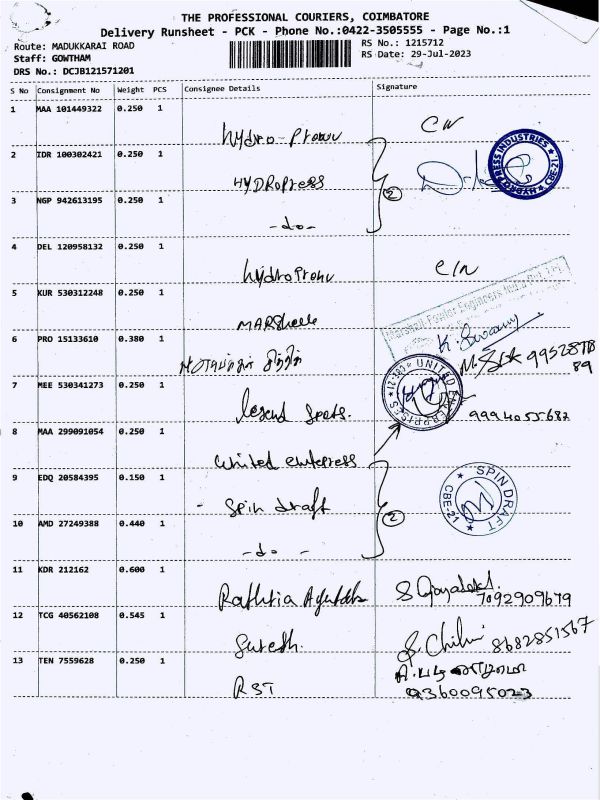 THE PROFESSIONAL COURIERS, COIMBATORE
Delivery Runsheet - PCK - Phone No.:0422-3505555 - Page No.:1
Route: MADUKKARAI ROAD
Staff: GOWTHAM
DRS No.: DCJB121571201
RS No.: 1215712
RS Date: 29-Jul-2023
S No Consignment No Weight PCS Consignee Details Signature
1 MAA 101449322 0.250 1
2 IDR 100302421 0.250 1
HYDROPRESS
HYDRO PRESS INDUSTRIES ★ CBE-21 ★
3 NGP 942613195 0.250 1
2
-do-
4 DEL 120958132 0.250 1
5 KUR 530312248 0.250 1
Marshall Fowler Engineers India Pvt. Ltd.
K. Swamy
6 PRO 15133610 0.380 1
7 MEE 530341273 0.250 1
UNITED ENTERPRISES ★ CBE-21 ★
9994055682
8 MAA 299091054 0.250 1
United
9 EDQ 20584395 0.150 1
- Spin draft
SPIN DRAFT ★ CBE-21 ★
10 AMD 27249388 0.440 1
2
-do-
11 KDR 212162 0.600 1
7092909679
12 TCG 40562108 0.545 1
Suresh.
8682851567
13 TEN 7559628 0.250 1
RST
9360095023